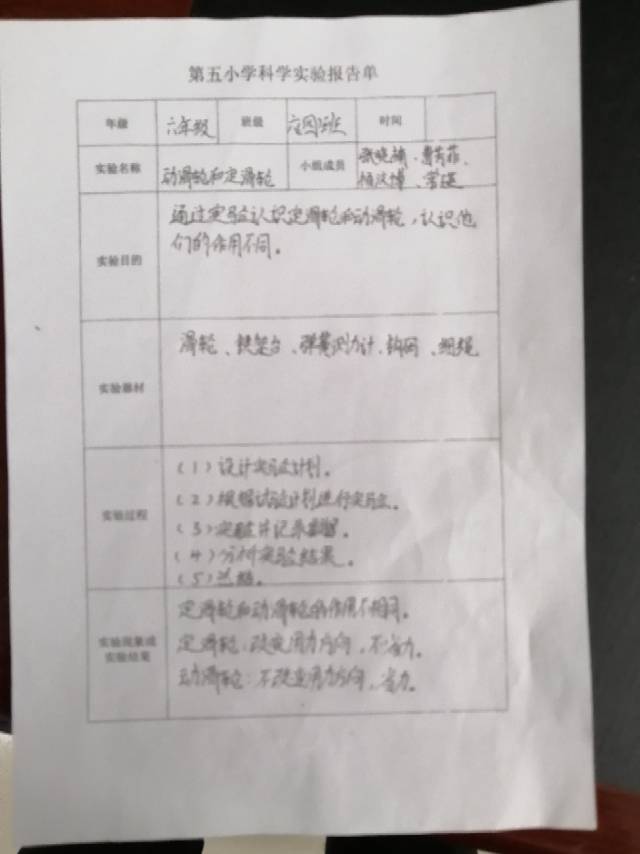 第五小学科学实验报告单
年级 六年级 班级 六四班 时间
实验名称 动滑轮和定滑轮 小组成员
实验目的 通过实验认识定滑轮和动滑轮，认识他
们的作用不同。
实验器材 滑轮、铁架台、弹簧测力计、钩码、细绳
实验过程
（1）设计实验计划。
（2）根据试验计划进行实验。
（3）实验并记录数据。
（4）分析实验结果。
（5）总结。
实验现象或
实验结果
定滑轮和动滑轮的作用不相同。
定滑轮：改变用力方向，不省力。
动滑轮：不改变用力方向，省力。